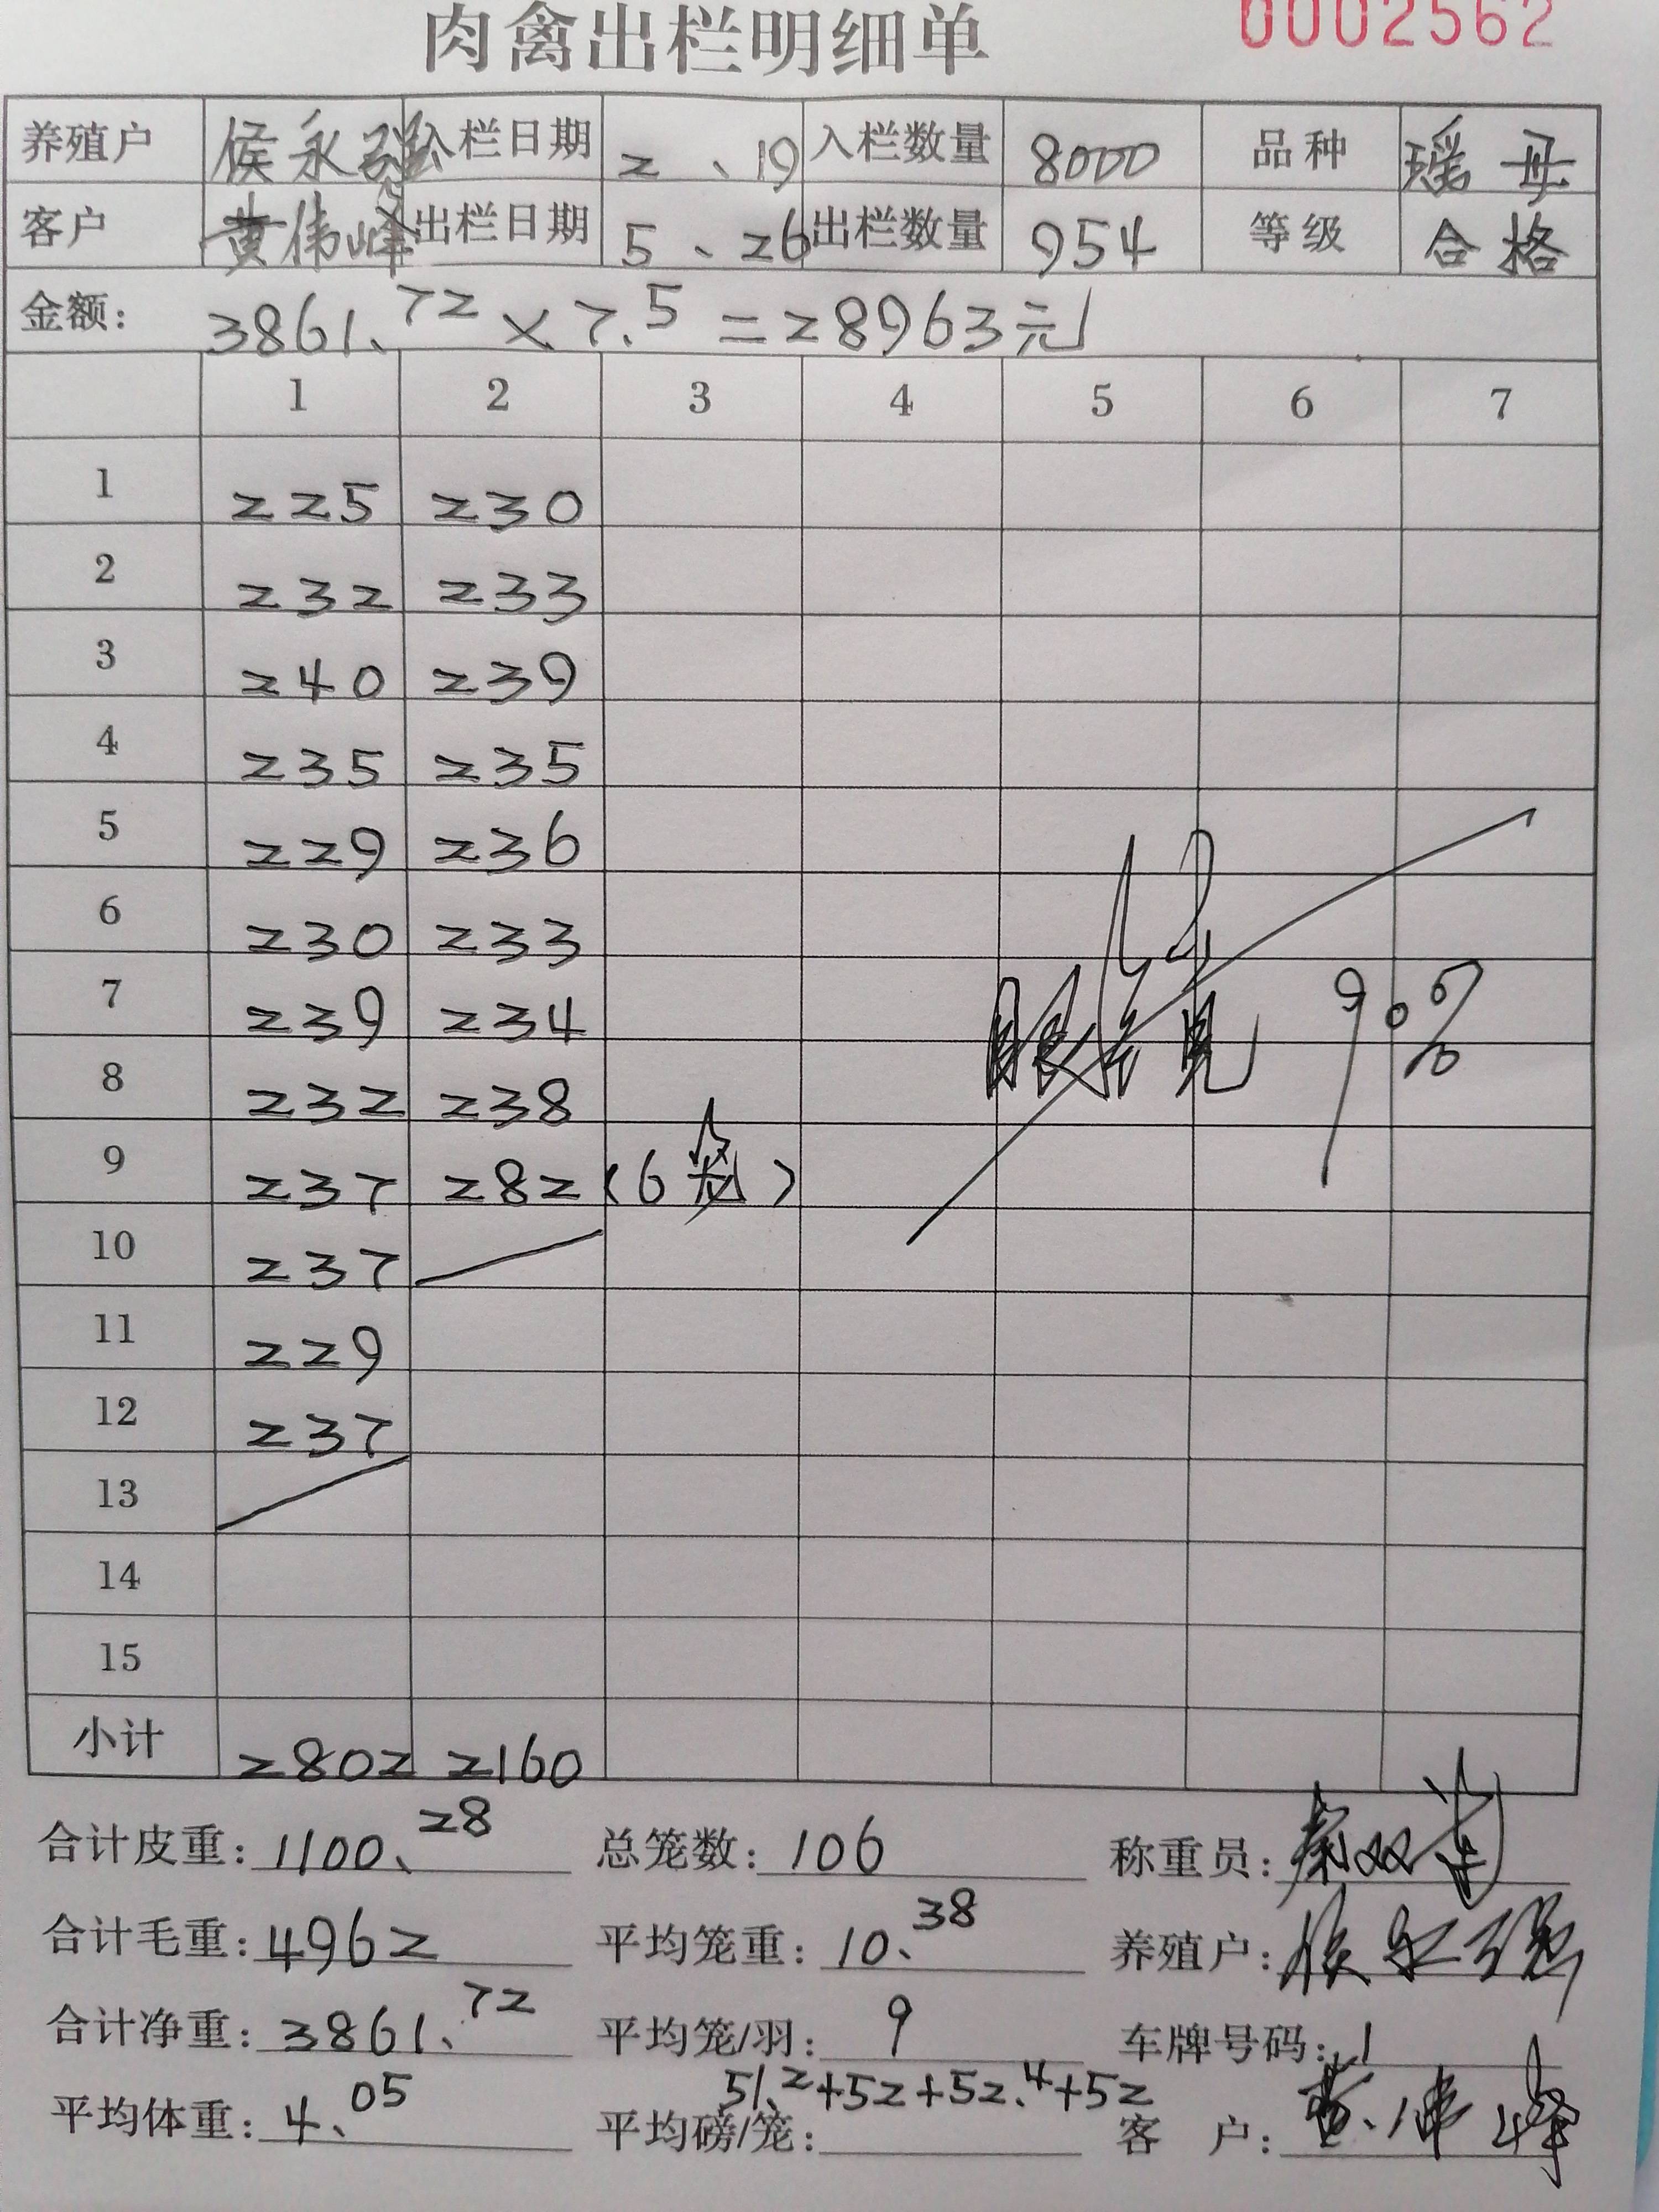 肉禽出栏明细单 0002562
养殖户 侯永强 入栏日期 2、19 入栏数量 8000 品种 瑶母
客户 黄伟峰 出栏日期 5、26 出栏数量 954 等级 合格
金额: 3861、72×7.5=28963元
1 2 3 4 5 6 7
1 225 230
2 232 233
3 240 239
4 235 235
5 229 236
6 230 233
7 239 234
8 232 238
9 237 282 (6笼)
10 237
11 229
12 237
13
14
15
小计 2802 2160
90%
合计皮重: 1100、28 总笼数: 106 称重员:
合计毛重: 4962 平均笼重: 10、38 养殖户: 侯永强
合计净重: 3861、72 平均笼/羽: 9 车牌号码: 1
51.2+52+52.4+52
平均体重: 4、05 平均磅/笼: 客 户: 黄伟峰